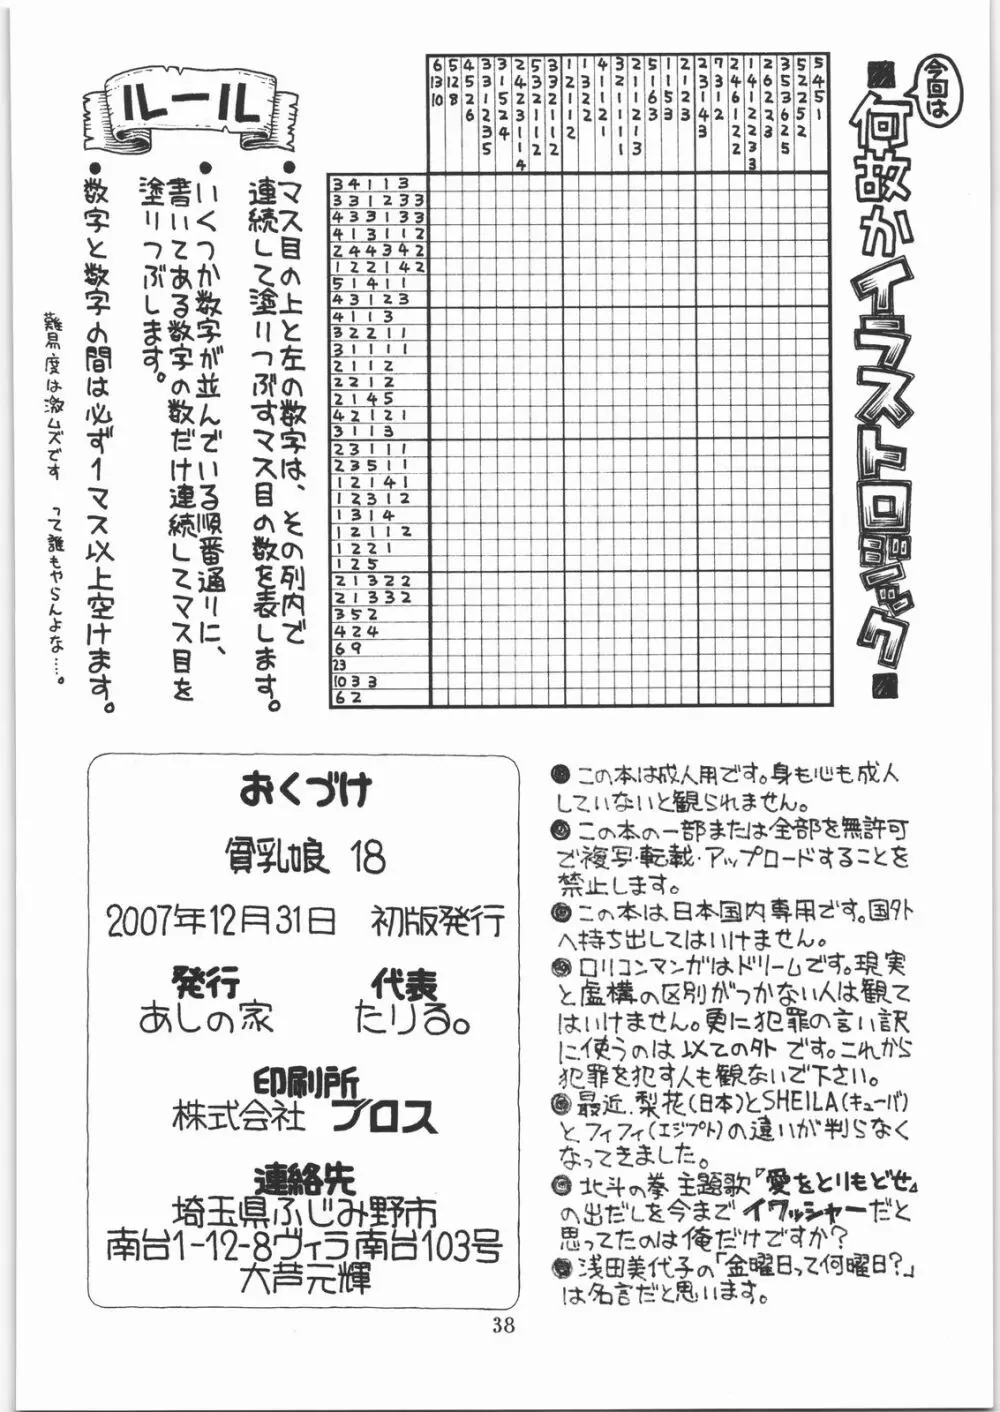 今回は
■何故かイラストロジック■
ルール
●マス目の上と左の数字は、その列内で
連続して塗りつぶすマス目の数を表します。
●いくつか数字が並んでいる順番通りに、
書いてある数字の数だけ連続してマス目を
塗りつぶします。
●数字と数字の間は必ず1マス以上空けます。
難易度は激ムズです って誰もやらんよな……。
3 4 1 1 3
3 3 1 2 3 3
4 3 3 1 3 3
4 1 3 1 1 2
2 4 4 3 4 2
1 2 2 1 4 2
5 1 4 1 1
4 3 1 2 3
4 1 1 3
3 2 2 1 1
3 1 1 1 1
2 1 1 2
2 2 1 2
2 1 4 5
4 2 1 2 1
3 1 1 3
2 3 1 1 1
2 3 5 1 1
1 2 1 4 1
1 2 3 1 2
1 3 1 4
1 2 1 1 2
1 2 2 1
1 2 5
2 1 3 2 2
2 1 3 3 2
3 5 2
4 2 4
6 9
23
10 3 3
6 2
おくづけ
貧乳娘 18
2007年12月31日 初版発行
発行 代表
あしの家 たりる。
印刷所
株式会社 プロス
連絡先
埼玉県ふじみ野市
南台1-12-8ヴィラ南台103号
大芦元輝
●この本は成人用です。身も心も成人
していないと観られません。
●この本の一部または全部を無許可
で複写・転載・アップロードすることを
禁止します。
●この本は日本国内専用です。国外
へ持ち出してはいけません。
●ロリコンマンガはドリームです。現実
と虚構の区別がつかない人は観て
はいけません。更に犯罪の言い訳
に使うのは以ての外です。これから
犯罪を犯す人も観ないで下さい。
●最近、梨花(日本)とSHEILA(キューバ)
とフィフィ(エジプト)の違いが判らなく
なってきました。
●北斗の拳 主題歌『愛をとりもどせ』
の出だしを今までイワッシャーだと
思ってたのは俺だけですか?
●浅田美代子の「金曜日って何曜日?」
は名言だと思います。
38